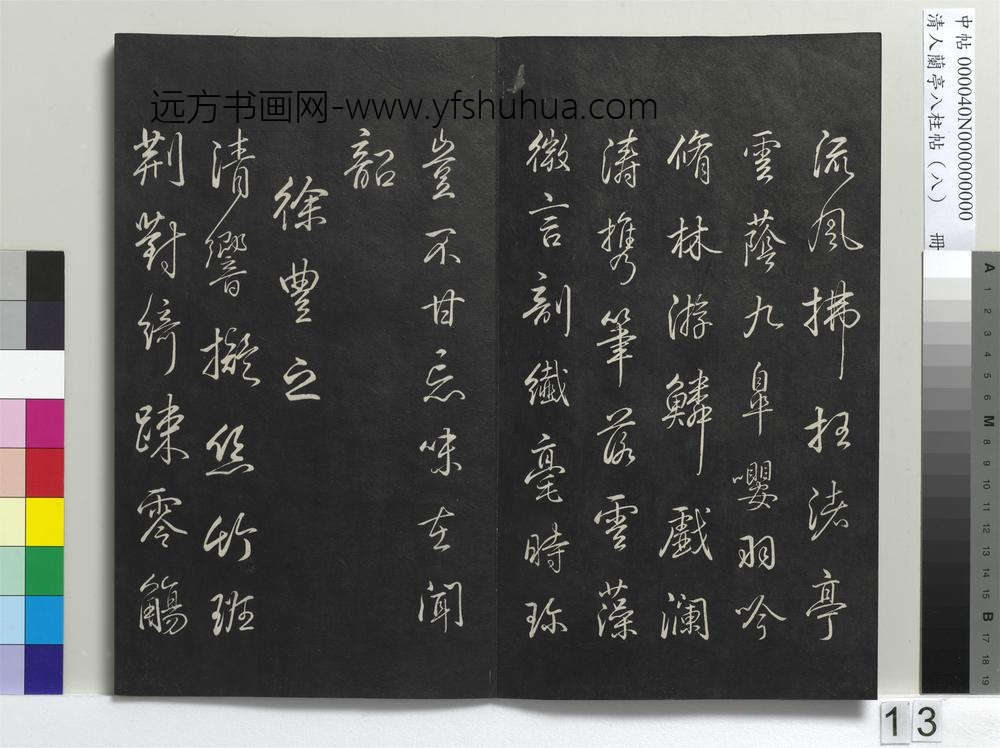 流風拂枉渚亭
雲蔭九皐嚶羽吟
脩林游鱗戲瀾
濤攜筆落雲藻
微言剖纖毫時珍
豈不甘忘味在聞
韶
徐豐之
清響擬絲竹班
荆對綺疎零觴
远方书画网-www.yfshuhua.com
中帖 000040N000000000
清人蘭亭八柱帖（八） 冊
A 1 2 3 4 5 6 M 8 9 10 11 12 13 14 15 B 17 18 19
13